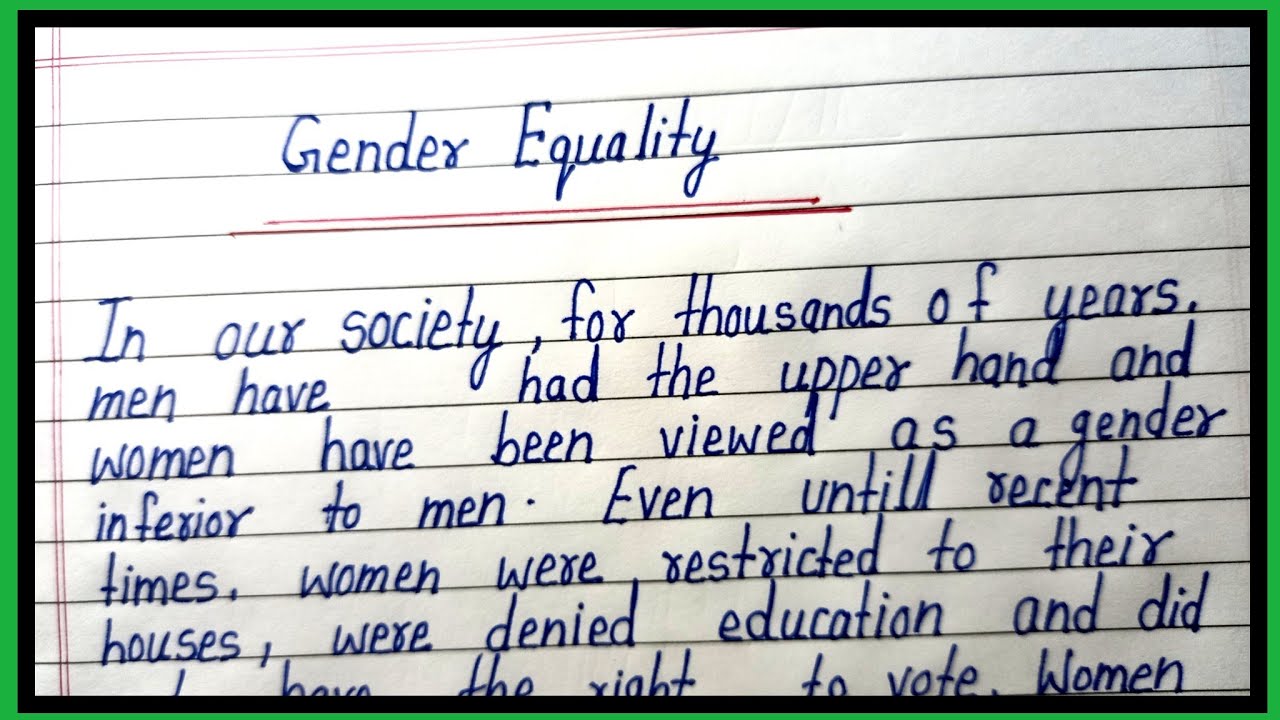 Gender Equality
In our society, for thousands of years,
men have had the upper hand and
women have been viewed as a gender
inferior to men. Even untill recent
times, women were restricted to their
houses, were denied education and did
have the right to vote. Women